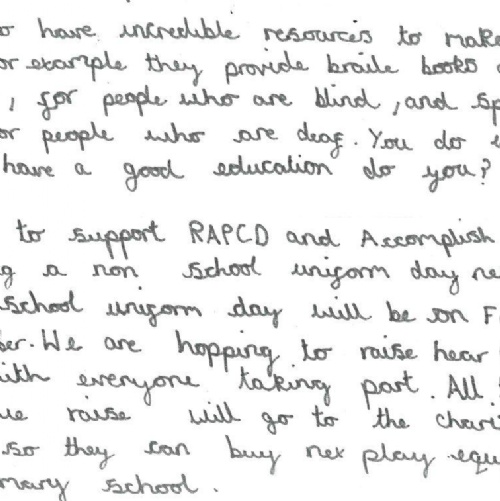 o have incredible resources to make
or example they provide braile books
, for people who are blind, and sp
or people who are deaf. You do
have a good education do you?
to support RAPCD and Accomplish
g a non school uniform day ne
school uniform day will be on F
ber. We are hopping to raise hear
ith everyone taking part. All
ue raise will go to the chari
so they can buy nex play equ
mary school.